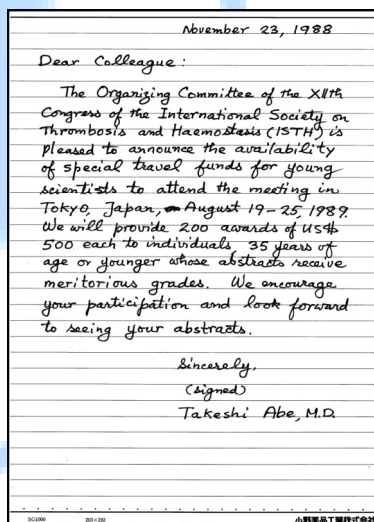 November 23, 1988
Dear Colleague:
The Organizing Committee of the XIIth
Congress of the International Society on
Thrombosis and Haemostasis (ISTH) is
pleased to announce the availability
of special travel funds for young
scientists to attend the meeting in
Tokyo, Japan, August 19-25, 1989.
We will provide 200 awards of US$
500 each to individuals 35 years of
age or younger whose abstracts receive
meritorious grades. We encourage
your participation and look forward
to seeing your abstracts.
Sincerely,
(signed)
Takeshi Abe, M.D.
SG1000 203×293 小野薬品工業株式会社